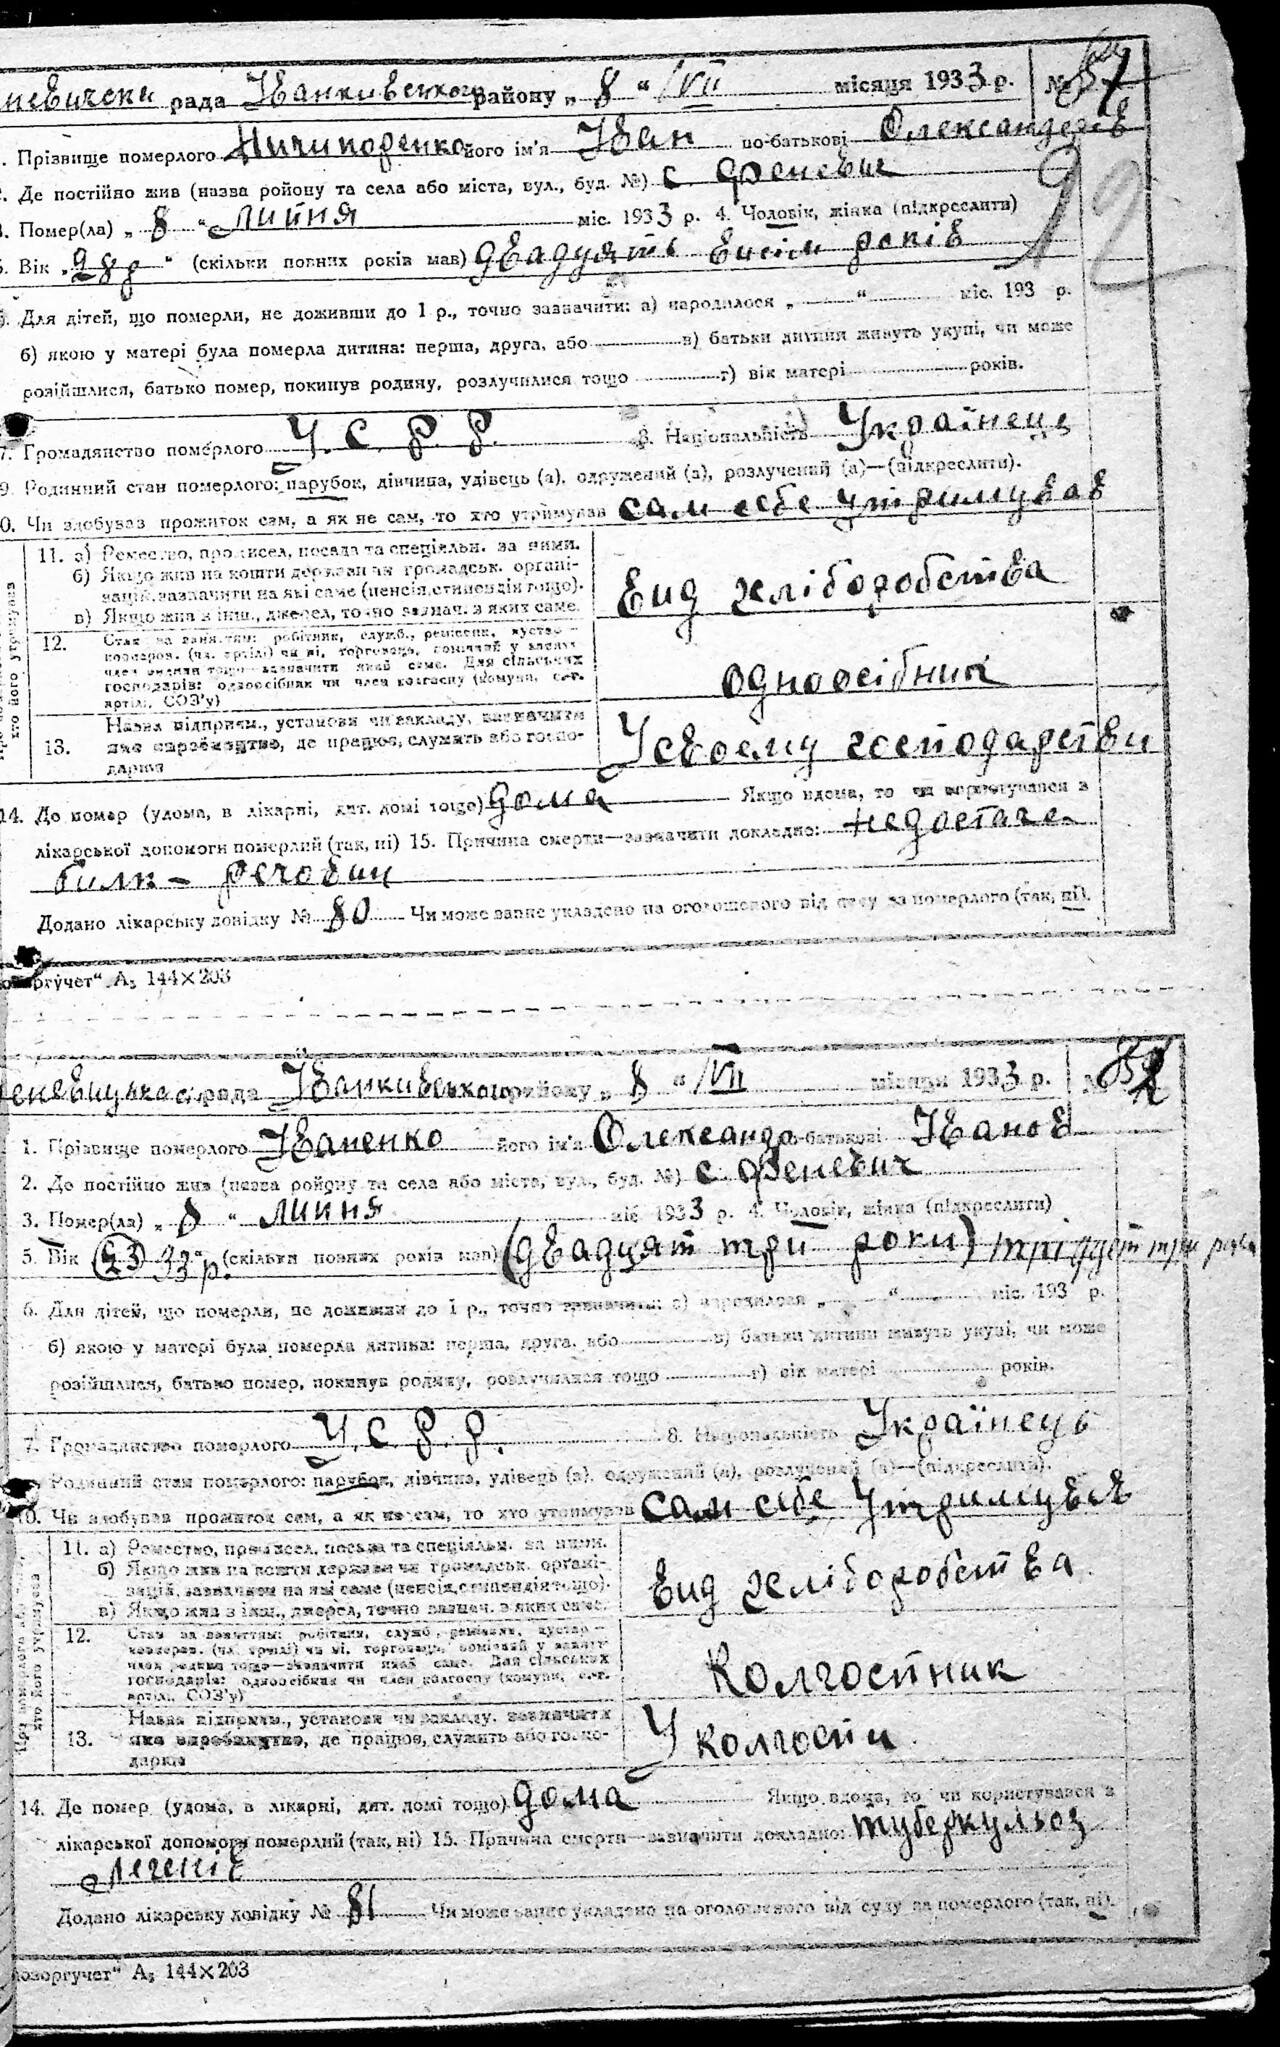 рада Іванкивського району „ 8 “ /VII місяця 1933 р. № 57
Прізвище померлого Ничипоренко його ім'я Іван по-батькові Олександров
12
Де постійно жив (назва ройону та села або міста, вул., буд. №) с. Феневич
Помер(ла) „ 8 “ Липня міс. 1933 р. 4. Чоловік, жінка (підкреслити)
Вік „ 28 р “ (скільки повних років мав) двадцять висім років
Для дітей, що померли, не доживши до 1 р., точно зазначити: а) народилося „ “ міс. 193 р.
б) якою у матері була померла дитина: перша, друга, або в) батьки дитини живуть укупі, чи може
розійшлися, батько помер, покинув родину, розлучилися тощо г) вік матері років.
7. Громадянство померлого У. С. Р. Р. 8. Національність Українець
9. Родинний стан померлого: парубок, дівчина, удівець (а), одружений (а), розлучений (а)—(підкреслити).
0. Чи здобував прожиток сам, а як не сам, то хто утримував сам себе утримував
11. а) Ремество, промисел, посада та спеціяльн. за ними.
б) Якщо жив на кошти держави чи громадськ. органі-
зацій, зазначити на які саме (пенсія, стипендія тощо).
в) Якщо жив з інш., джерел, точно зазнач. з яких саме.
вид хліборобства
12. Стан за заняттям: робітник, служб., ремісник, кустар-
господарів: одноосібник чи член колгоспу (комуни, с.-г.
артілі, СОЗ'у)
одноосібник
13. Назва підприєм., установи чи закладу, визначити
яке виробництво, де працює, служить або госпо-
даршя
У своему господарстви
14. Де помер (удома, в лікарні, дит. домі тощо) дома Якщо вдома, то чи користувався з
лікарської допомоги померлий (так, ні) 15. Причина смерти—зазначити докладно: недостача
билк - речовин
Додано лікарську довідку № 80 Чи може запис укладено на оголошеного від суду за померлого (так, ні).
учет“ А₅ 144×203
рада Іванкивського району „ 8 “ /VII місяця 1933 р. №
1. Прізвище померлого Іваненко його ім'я Олександр по-батькові Іванов
2. Де постійно жив (назва ройону та села або міста, вул., буд. №) с. Феневич
3. Помер(ла) „ 8 “ Липня міс. 1933 р. 4. Чоловік, жінка (підкреслити)
5. Вік (23) 33 р. (скільки повних років мав) (двадцят три роки) тридцят три роки
6. Для дітей, що померли, не доживши до 1 р., точно зазначити: а) народилося „ “ міс. 193 р.
б) якою у матері була померла дитина: перша, друга, або в) батьки дитини живуть укупі, чи може
розійшлися, батько помер, покинув родину, розлучилися тощо г) вік матері років.
7. Громадянство померлого У. С. Р. Р. 8. Національність Українець
Родинний стан померлого: парубок, дівчина, удівець (а), одружений (а), розлучений (а)—(підкреслити).
10. Чи здобував прожиток сам, а як не сам, то хто утримував сам себе утримував
11. а) Ремество, промисел, посада та спеціяльн. за ними.
б) Якщо жив на кошти держави чи громадськ. органі-
зацій, зазначити на які саме (пенсія, стипендія тощо).
в) Якщо жив з інш., джерел, точно зазнач. з яких саме.
вид хліборобства
12. Стан за заняттям: робітник, служб., ремісник, кустар-
господарів: одноосібник чи член колгоспу (комуни, с.-г.
артілі, СОЗ'у)
Колгоспник
13. Назва підприєм., установи чи закладу, визначити
яке виробництво, де працює, служить або госпо-
даршя
У колгоспи
14. Де помер (удома, в лікарні, дит. домі тощо) дома Якщо вдома, то чи користувався з
лікарської допомоги померлий (так, ні) 15. Причина смерти—зазначити докладно: туберкульоз
легенів
Додано лікарську довідку № 81 Чи може запис укладено на оголошеного від суду за померлого (так, ні).
учет“ А₅ 144×203